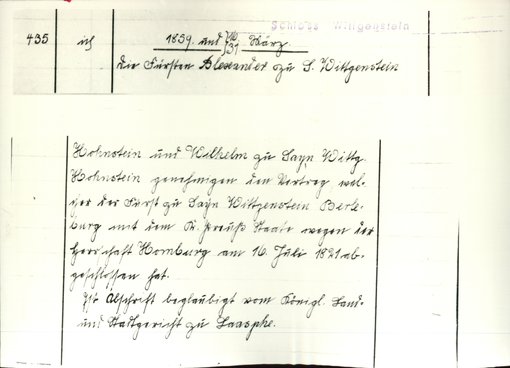 Schloss Wittgenstein
435 ich 1859. und 16/31 März.
die Fürsten Alexander zu S. Wittgenstein
Hohnstein und Wilhelm zu Sayn Wittg.
Hohnstein genehmigen den Vertrag, wel-
cher der Fürst zu Sayn Wittgenstein Berle-
burg mit dem K. Preuß Staate wegen der
Herrschaft Homburg am 16. Juli 1821 ab-
geschlossen hat.
Ist Abschrift beglaubigt vom Königl. Land-
und Stadtgericht zu Laasphe.